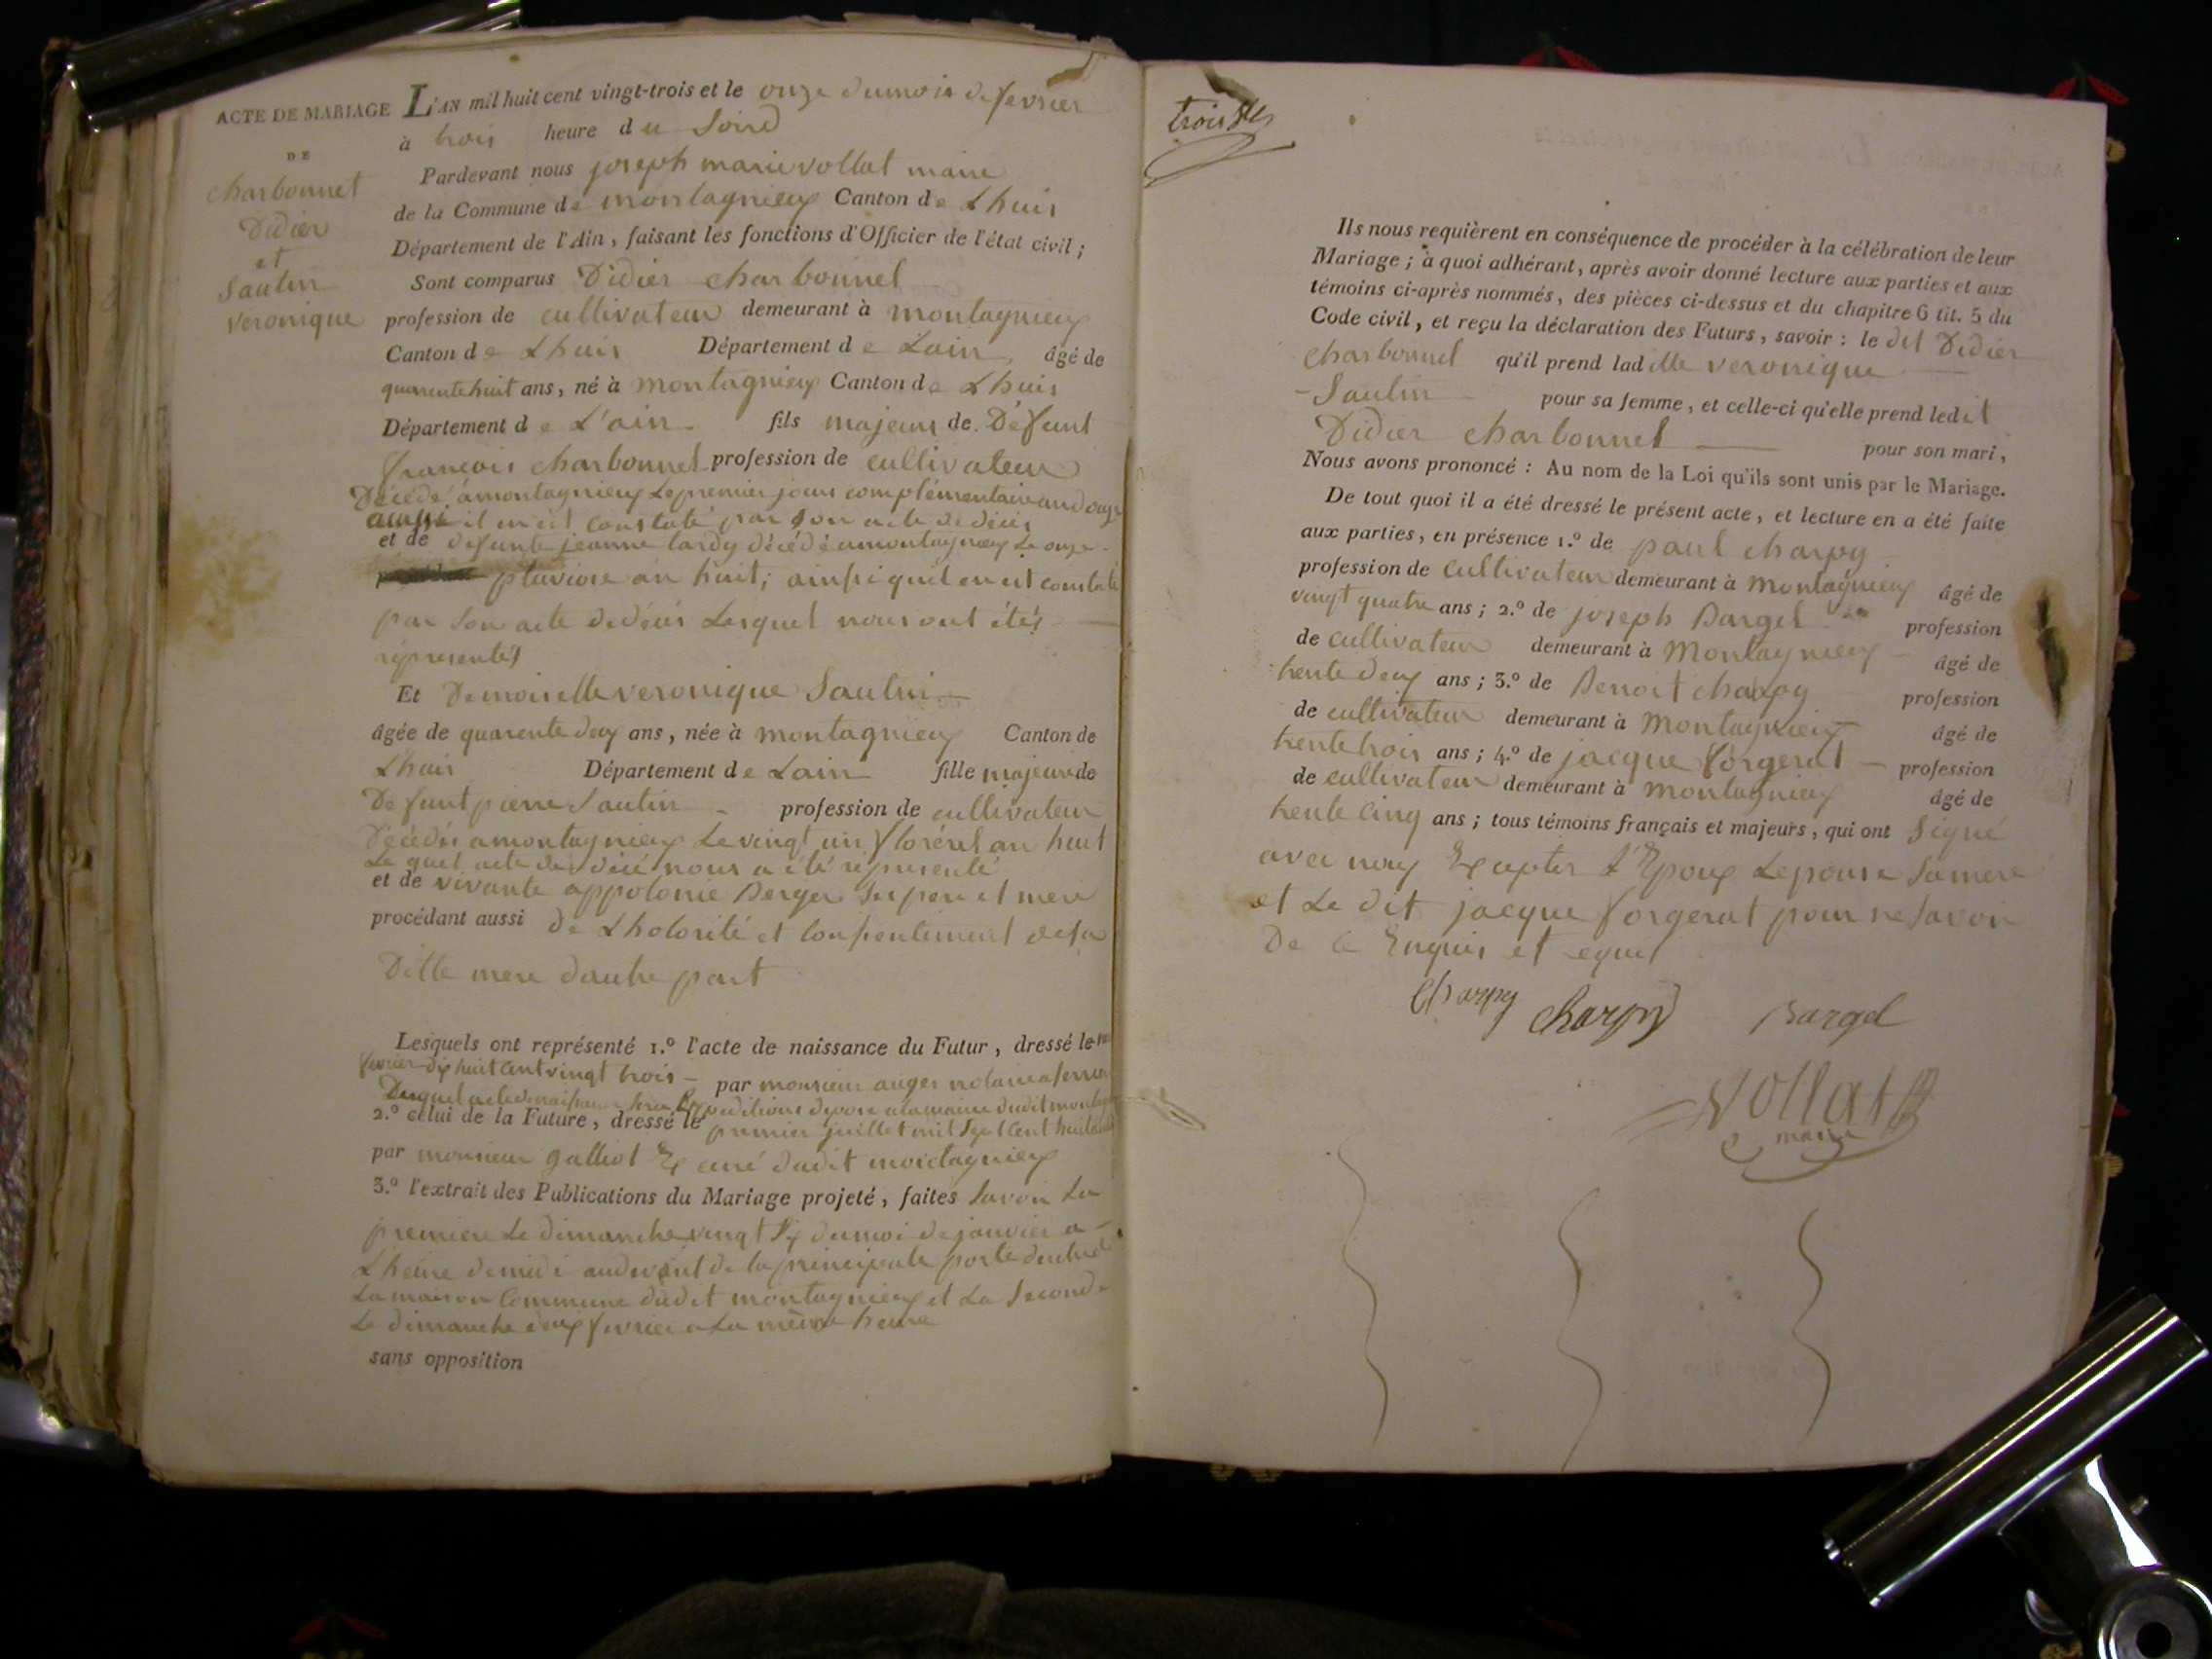 ACTE DE MARIAGE
DE
charbonnet
Didier
et
Sautin
veronique
L'AN mil huit cent vingt-trois et le onze du mois de fevrier
à trois heure du Soird
Pardevant nous joseph marie vollat maire
de la Commune de montagnieux Canton de Lhuis
Département de l'Ain, faisant les fonctions d'Officier de l'état civil;
Sont comparus Didier charbonnel
profession de cultivateur demeurant à montagnieux
Canton de Lhuis Département de Lain âgé de
quarente huit ans, né à montagnieux Canton de Lhuis
Département de L'ain fils majeur de Défunt
françois charbonnel profession de cultivateur
Décédé a montagnieux le premier jour complémentaire an douze
il en est constaté par son acte de décès
et de defunte jeanne tardy décédé a montagnieux Le onze
pluviose an huit; ainsi quil en est constaté
par Son acte de décès Lesquel nous ont étés
représentés
Et Demoiselle veronique Sautin
âgée de quarente deux ans, née à montagnieux Canton de
Lhuis Département de Lain fille majeur de
Defunt pierre Sautin profession de cultivateur
Décédés a montagnieux Le vingt un floréal an huit
Le quel acte de décé nous a été représenté
et de vivante appolonie Berger Ses pere et mere
procédant aussi de Lhotorité et Consentement de sa
Ditte mere dautre part
Lesquels ont représenté 1.º l'acte de naissance du Futur, dressé le
fevrier dix huit Cent vingt trois par monsieur auger notaire a
Duquel acte de naissance deposé a la mairie dudit
2.º celui de la Future, dressé le premier juillet mil Sept Cent
par monsieur galliot curé dudit montagnieux
3.º l'extrait des Publications du Mariage projeté, faites Savoir La
premiere Le dimanche vingt Six du moi de janvier a
Lheure de midi au devant de la principale porte dentrée
La maison Commune dudit montagnieux et La Seconde
Le dimanche deux fevrier a La même heure
sans opposition
trois
Ils nous requièrent en conséquence de procéder à la célébration de leur
Mariage; à quoi adhérant, après avoir donné lecture aux parties et aux
témoins ci-après nommés, des pièces ci-dessus et du chapitre 6 tit. 5 du
Code civil, et reçu la déclaration des Futurs, savoir: le dit Didier
charbonnel qu'il prend ladille veronique
Sautin pour sa femme, et celle-ci qu'elle prend ledit
Didier charbonnel pour son mari,
Nous avons prononcé: Au nom de la Loi qu'ils sont unis par le Mariage.
De tout quoi il a été dressé le présent acte, et lecture en a été faite
aux parties, en présence 1.º de paul charpy
profession de Cultivateur demeurant à montagnieux âgé de
vingt quatre ans; 2.º de joseph Bargel profession
de cultivateur demeurant à Montagnieux âgé de
trente deux ans; 3.º de Benoit charpy profession
de cultivateur demeurant à Montagnieux âgé de
trente trois ans; 4.º de jacque forgerat profession
de cultivateur demeurant à montagnieux âgé de
trente Cinq ans; tous témoins français et majeurs, qui ont Signé
avec nous Excepter L'Epoux Lepouse Sa mere
et Le dit jacque forgerat pour ne Savoir
De Ce Enquis et
Charpy charpy Bargel
Vollat
maire